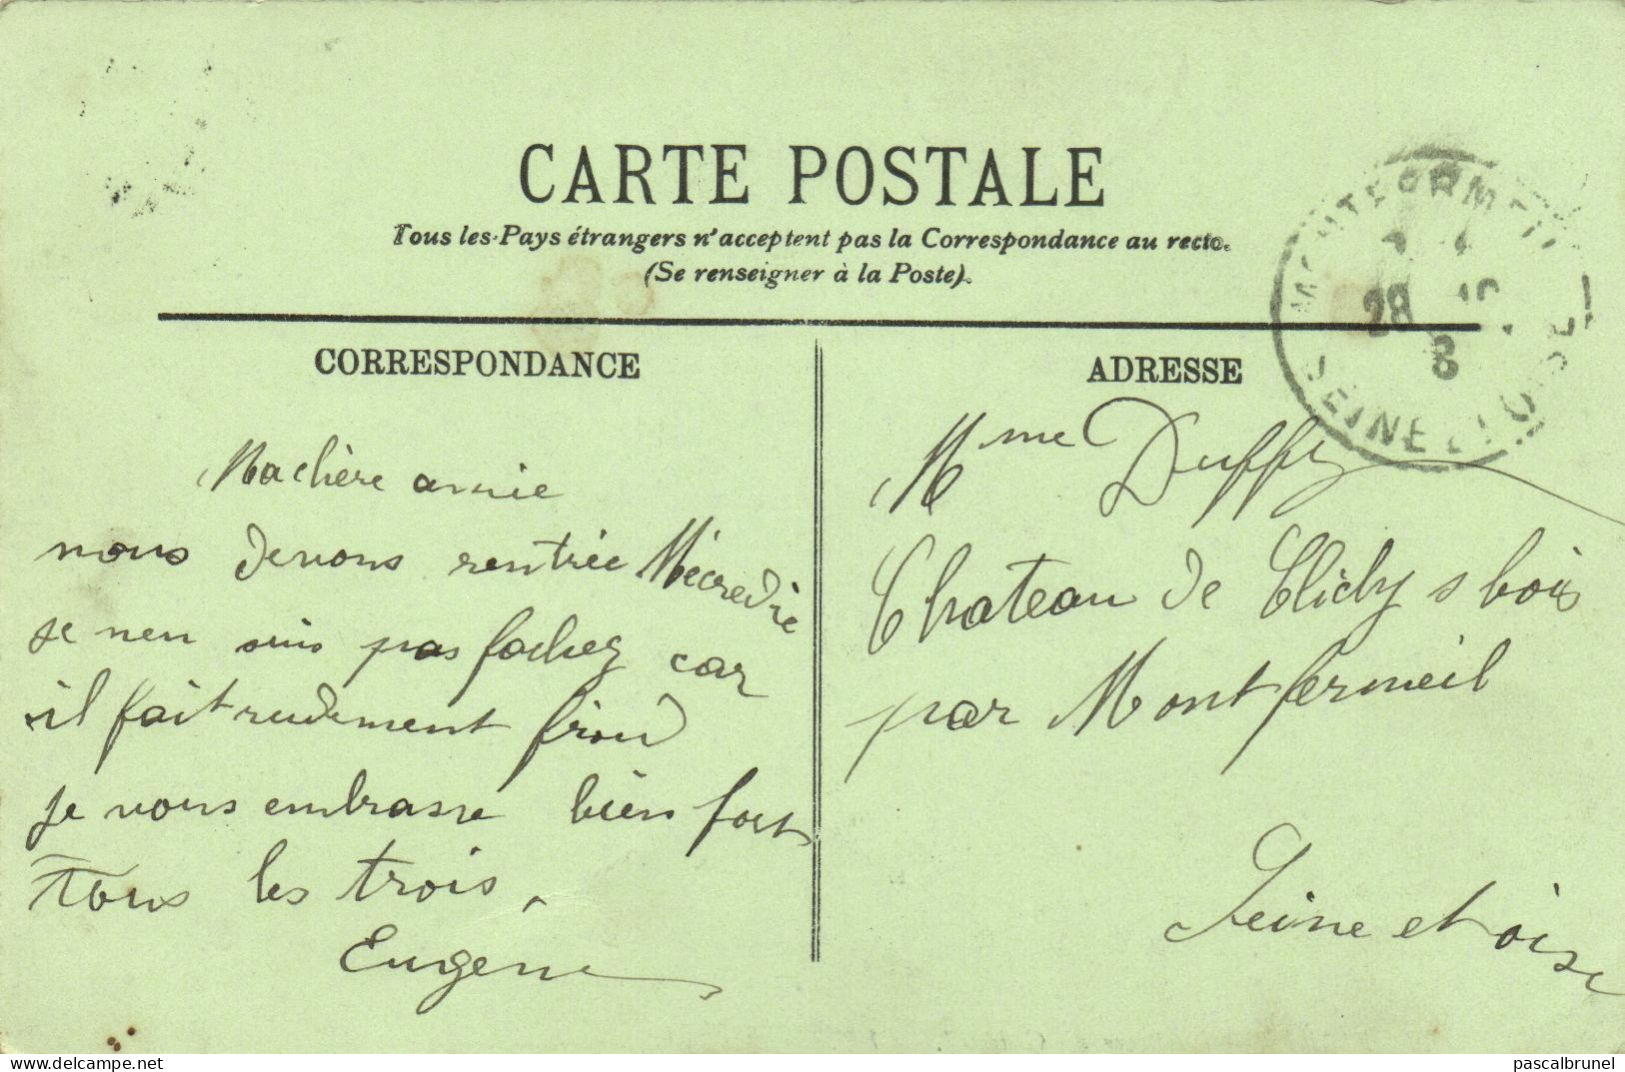 CARTE POSTALE
Tous les Pays étrangers n'acceptent pas la Correspondance au recto.
(Se renseigner à la Poste).
CORRESPONDANCE
Ma chère amie
nous devons rentrée Mécredie
je nen suis pas fachez car
il fait rudement froid
je vous embrasse bien fort
Tous les trois.
Eugene
ADRESSE
Mme Duffy
Chateau de Clichy s bois
par Montfermeil
Seine et oise
28 10
8
SEINE ET OISE
delcampe.net
pascalbrunel